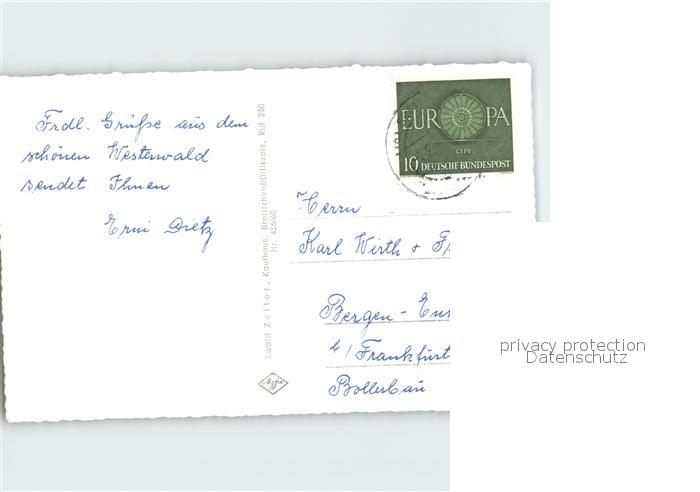 Frdl. Grüße aus dem
schönen Westerwald
sendet Ihnen
Erni Dietz
Ewald Zeiler, Kaufhaus, Breitscheid/Dillkreis, Ruf 250
Nr. 436/60
Agfa
EUROPA
CEPT
10 DEUTSCHE BUNDESPOST
Herrn
Karl Wirth + F
Bergen - En
b/Frankfurt
privacy protection
Datenschutz